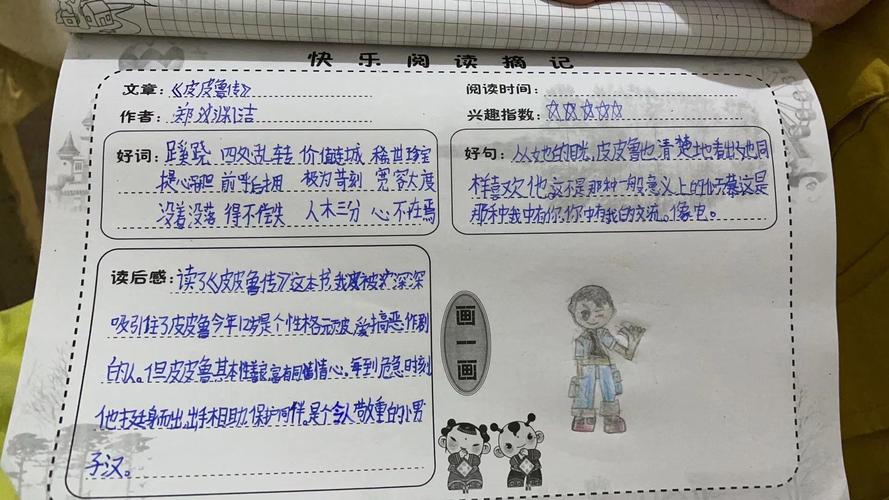 快乐阅读摘记
文章：《皮皮鲁传》
阅读时间：
作者：郑渊洁
兴趣指数：☆☆☆☆☆
好词：蹊跷 四处乱转 价值连城 稀世珍宝
提心吊胆 前呼后拥 极为苛刻 宽容大度
没着没落 得不偿失 入木三分 心不在焉
好句：从她的目光，皮皮鲁也清楚地看出她也同
样喜欢他这不是那种一般意义上的仰慕这是
那种我中有你，你中有我的交流。像电。
读后感：读了《皮皮鲁传》这本书，我被深深
吸引住了皮皮鲁今年12岁是个性格顽皮，爱搞恶作剧
的人。但皮皮鲁其本性善良富有同情心，每到危急时刻
他挺身而出，出手相助，保护同伴。是个令人敬重的小男
子汉。
画一画